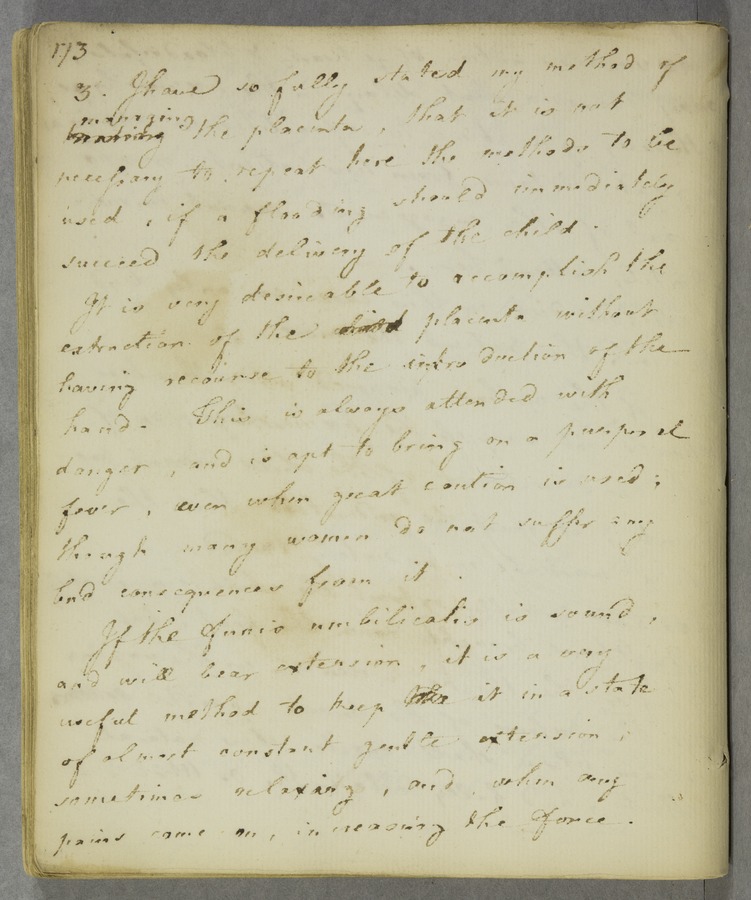 173
3. I have so fully stated my method of
managing
treating the placenta, that it is not
necessary to repeat here the methods to be
used, if a flooding should immediately
succeed the delivery of the child.
It is very desireable to accomplish the
extraction of the child placenta without
having recourse to the introduction of the
hand. This is always attended with
danger, and is apt to bring on a puerperal
fever, even when great caution is used;
though many women do not suffer any
bad consequences from it.
If the funis umbilicalis is sound,
and will bear extension, it is a very
useful method to keep the it in a state
of almost constant gentle extension;
sometimes relaxing, and when any
pains come on, increasing the force.